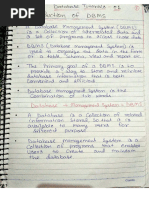 Database
Introduction of DBMS
Database Management System (DBMS)
is a collection of interrelated data and
a set of programs to access those data
DBMS (Database Management System) is
used to organize the data in the form
of a table, schema, views and
The primary goal of a DBMS is to
provide a way to store and retrieve
database information that is both
convenient and efficient
Database Management System is the
combination of two words.
Database + Management System = DBMS
A Database is a collection of related
information stored, so that it is
available to many users for
different
Database Management System is
to create and maintain
the database